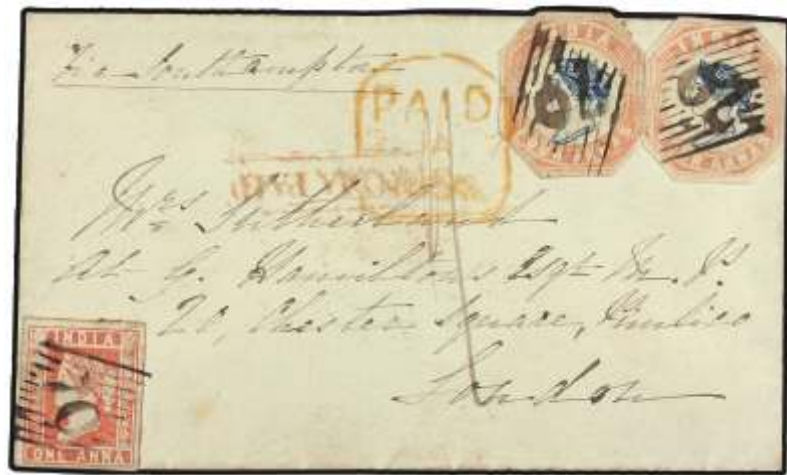 Via Southampton
INDIA
INDIA
PAID
Mrs Sutherland
At G. Hamilton's Esqre M.P.
20, Chester Square, Pimlico
London
INDIA
ONE ANNA